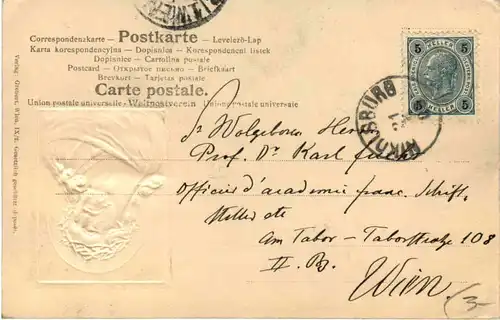 Correspondenzkarte – Postkarte – Levelező-Lap
Karta korespondencyjna – Dopisnica – Korespondenčni listek
Dopisnice – Cartolina postale
Postcard – Открытое письмо – Briefkaart
Brevkort – Tarjeta postale
Carte postale.
Union postale universelle – Weltpostverein – Union postale universelle
5 5
HELLER
5 5
NIKOLSBURG
Sr Wolgeboren Herr
Prof. Dr Karl
Officier d'academie franc. Schift.
steller etc
Am Tabor – Taborstraße 108
II. Bz.
Wien